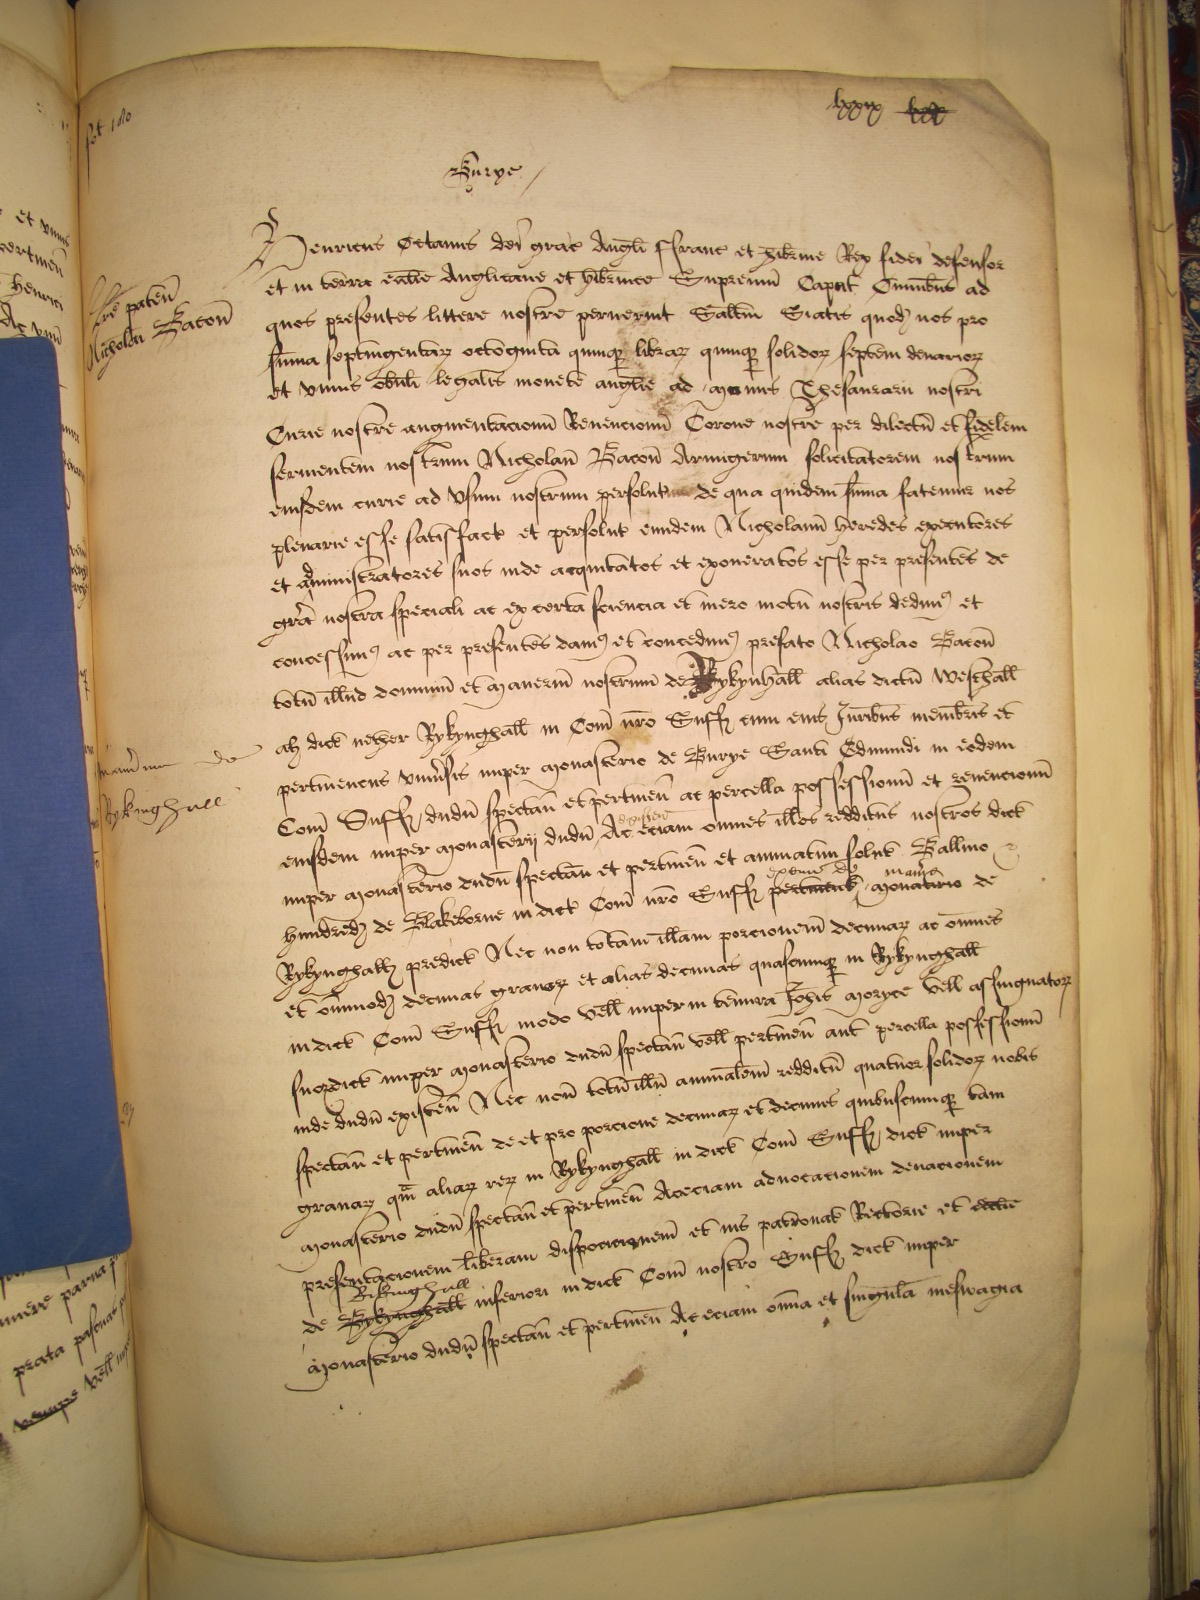 lxxix
Burye
Henricus Octauus dei grac Angli ffranc et hibernie Rex fidei defensor
et in terra ecclie Anglicane et hibernice Supremu Caput Omnibus ad
quos presentes littere nostre peruenerint Saltm Sciatis quod nos pro
suma septingentar octoginta quinq librar quinq solidor septem denarior
et vnius obuli legalis monete anglie ad manus Thesaurarii nostri
Curie nostre augmentacionu Reuencionu Corone nostre per dilectu et fidelem
seruientem nostrum Nicholau Bacon Armigerum solicitatorem nostrum
eiusdem curie ad vsum nostrum persolut de qua quidem suma fatemur nos
plenarie esse satisfact et persolut eundem Nicholaum heredes executores
et administratores suos inde acquitatos et exoneratos esse per presentes de
gra nostra speciali ac ex certa sciencia et mero motu nostris dedim et
concessim ac per presentes dam et concedim prefato Nicholao Bacon
totu illud dominiu et maneriu nostrum de Rykynhall alias dictu westhall
als dict nether Rykynghall in Com nro Suff cum eius Juribus membris et
pertinencus vniuersis nuper monasterio de Burye Sancti Edmundi in eodem
Com Suff dudu spectan et pertinen ac percella possessionu et reuencionu
eiusdem nuper monasterij dudu Ac eciam omnes illos redditus nostros dict
nuper monasterio dudu spectan et pertinen et annuatim solut Balliuo
hundred de Blakeborne in dict Com nro Suff exeunt de maner de
Rykynghall predict Nec non totam illam porcionem decimar ac omnes
et omimod decimas granor et alias decimas quascumq in Rykynghall
in dict Com Suff modo vell nuper in tenura Johis moryce vell assingnator
suor dict nuper monasterio dudu spectan vell pertinen aut percella possessionu
inde dudu existen Nec non totu illu annualem redditu quatuor solidor nobis
spectan et pertinen de et pro porcione decimar et decimis quibuscumq tam
granar qm aliar rer in Rykynghall in dict Com Suff dict nuper
monasterio dudu spectan et pertinen Aceciam aduocacionem donacionem
presentacionem liberam disposicionem et ius patronat Rectorie et ecclie
de Rikinghall inferiori in dict Com nostro Suff dict nuper
monasterio dudu spectan et pertinen Ac eciam omia et singula meswagia
lre paten
Nicholai Bacon
Rykinghall